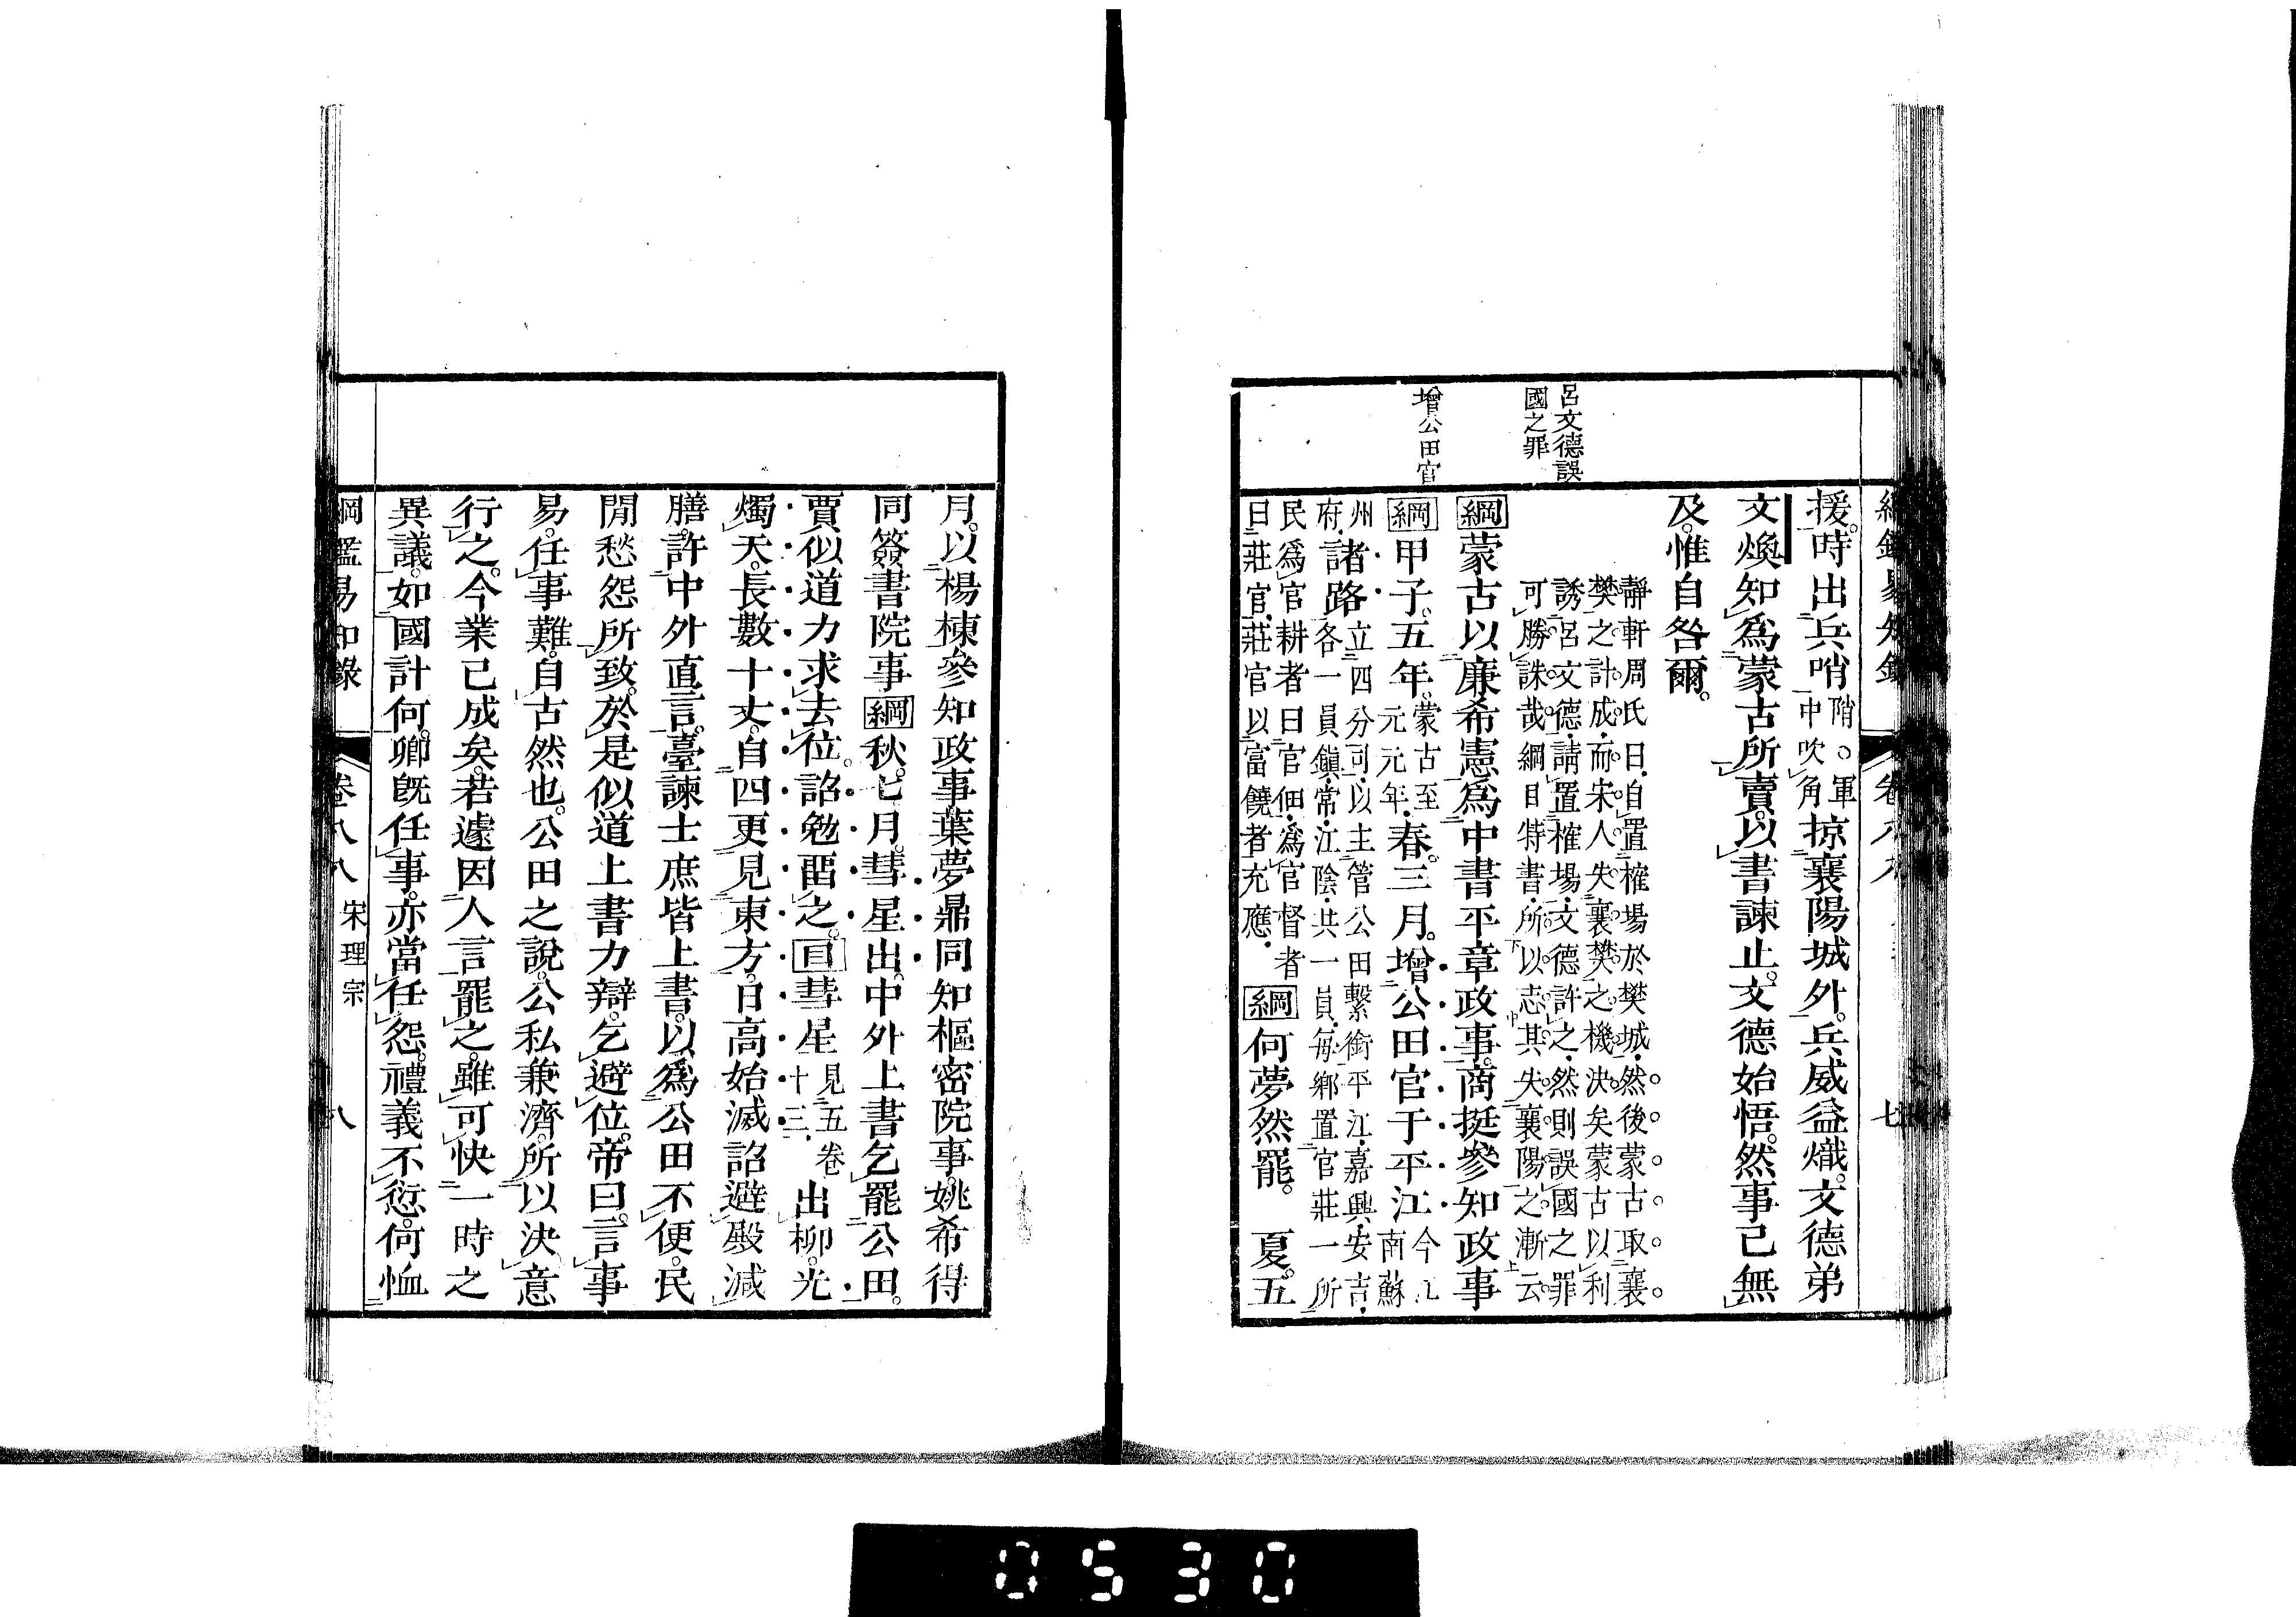 援。時出兵哨哨。軍中吹角掠襄陽城外。兵威益熾。文德弟
文煥知爲蒙古所賣。以書諫止。文德始悟。然事已無
及。惟自咎爾。
靜軒周氏曰、自置榷場於樊城、然後蒙古取襄
樊之計成、而宋人失襄樊之機決矣蒙古以利
誘呂文德、請置榷場、文德許之、然則誤國之罪
可勝誅哉綱目特書、所以志其失襄陽之漸云
綱蒙古以廉希憲爲中書平章政事。商挺參知政事
綱甲子。五年。蒙古至元元年、春。三月。增公田官于平江今江南蘇
州諸路立四分司、以主管公田繫銜平江、嘉興、安吉、
府、各一員鎭、常、江陰、共一員、每鄉置官莊一所
民爲官耕者曰官佃、爲官督者
曰莊官、莊官以富饒者充應、綱何夢然罷。夏。五
呂文德誤
國之罪
增公田官
七
月。以楊棟參知政事。葉夢鼎同知樞密院事。姚希得
同簽書院事綱秋。七月。彗星出。中外上書乞罷公田。
賈似道力求去位。詔勉畱之。目彗星見五卷十三、出柳。光
燭天。長數十丈。自四更見東方。日高始滅詔避殿減
膳。許中外直言。臺諫士庶皆上書。以爲公田不便。民
閒愁怨所致。於是似道上書力辯。乞避位。帝曰。言事
易。任事難。自古然也。公田之說。公私兼濟。所以決意
行之。今業已成矣。若遽因人言罷之。雖可快一時之
異議。如國計何。卿旣任事。亦當任怨。禮義不愆。何恤
綱鑑易知錄 卷八八 宋理宗 八
0530